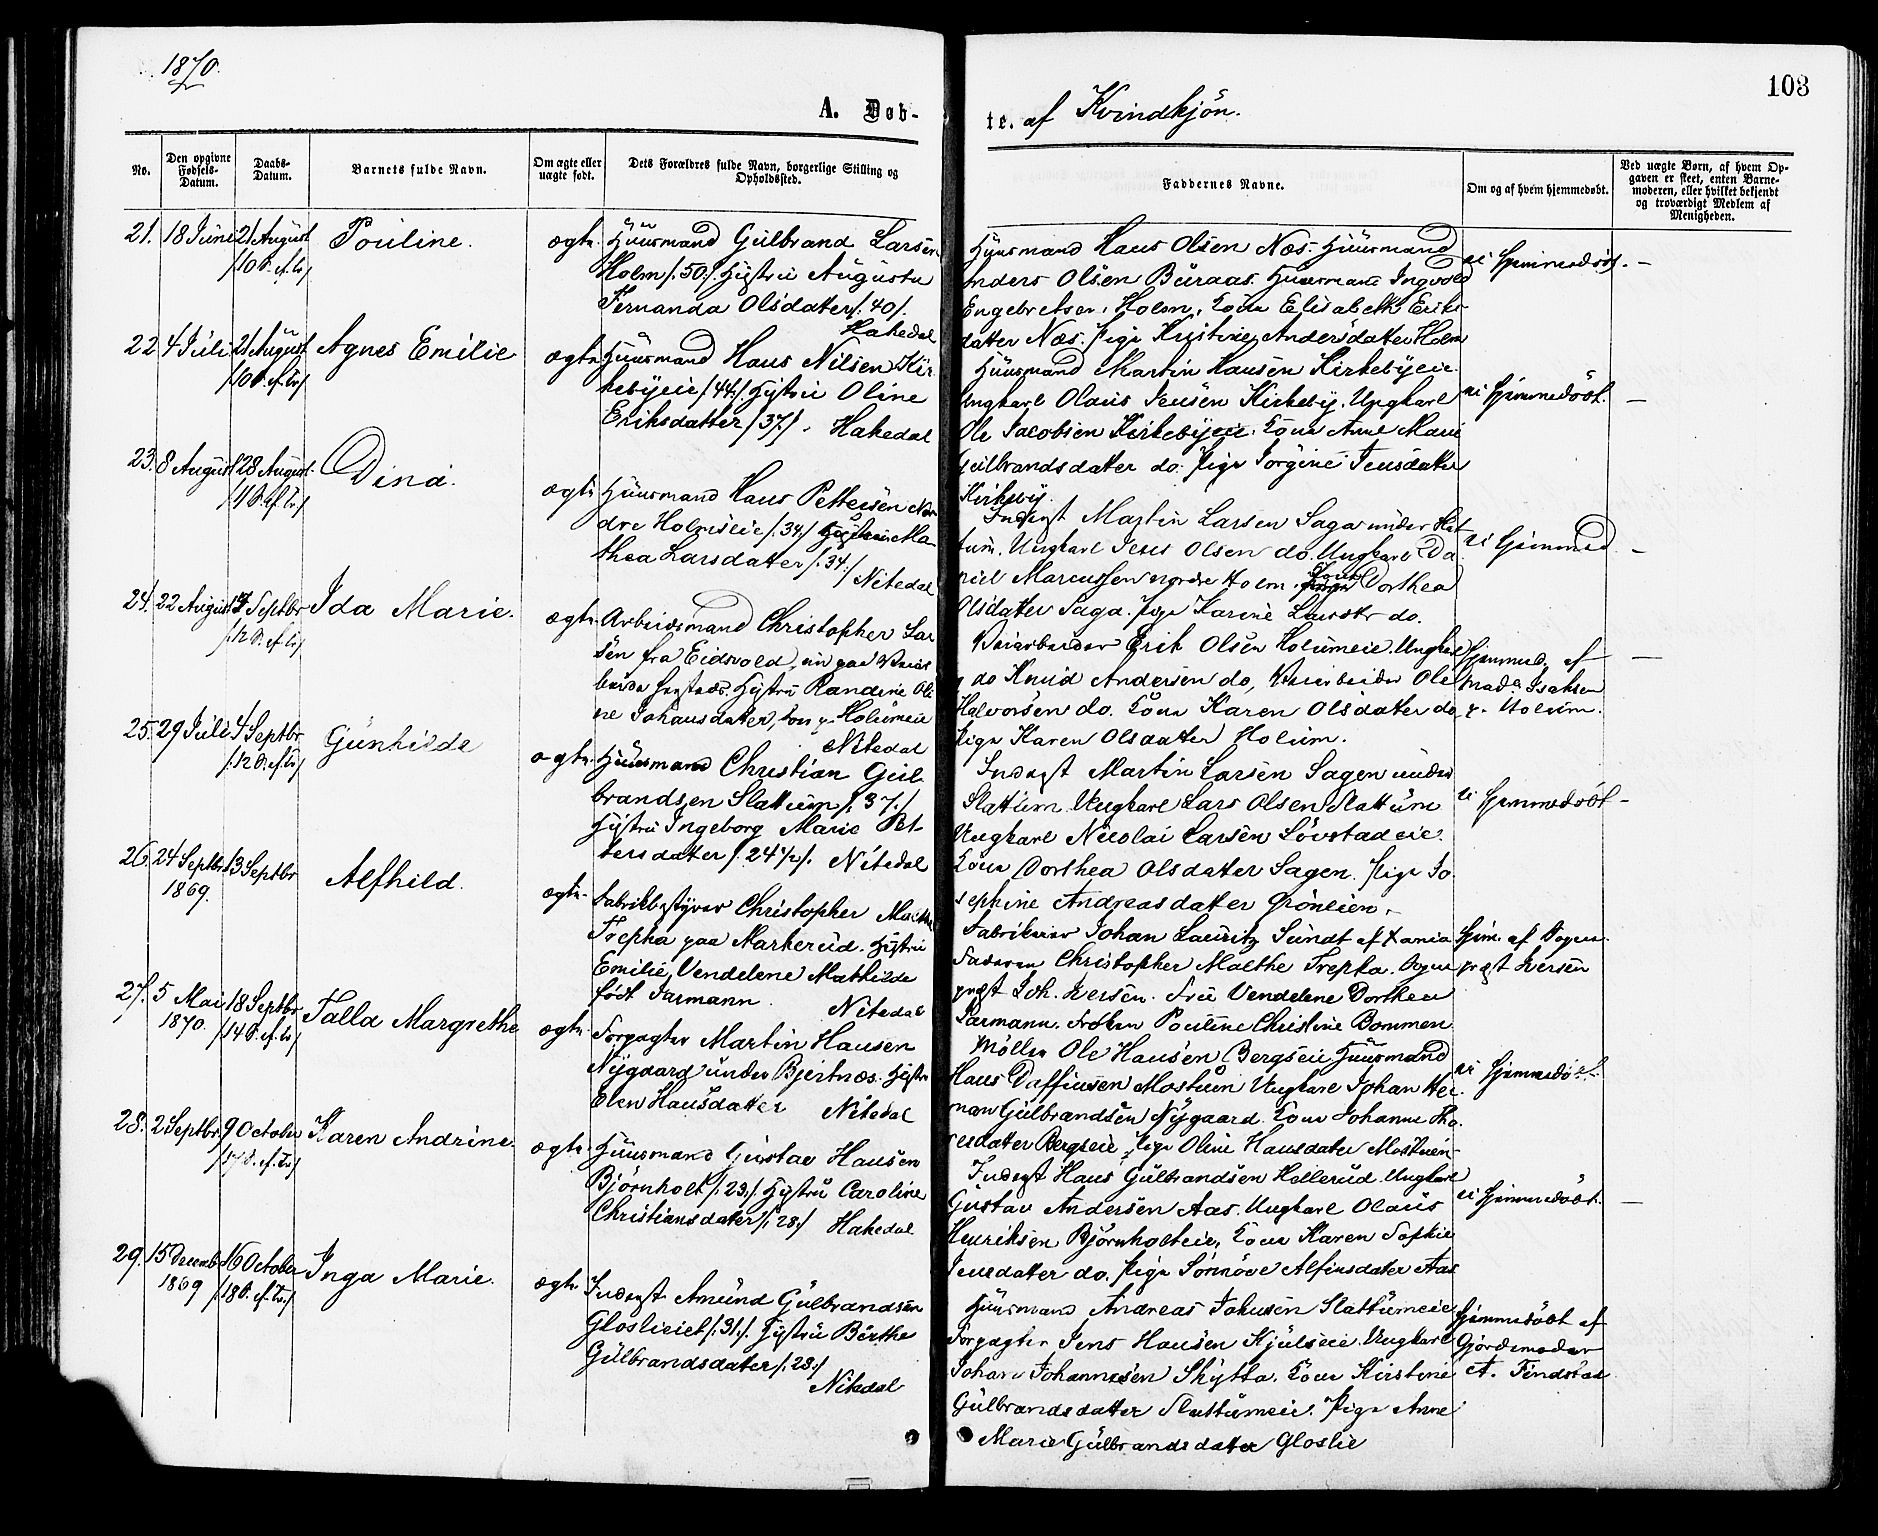 1870.
103
A. Døb-
te. af Kvindkjön.
No.
Den opgivne
Fødsels-
Datum.
Daabs-
Datum.
Barnets fulde Navn.
Om ægte eller
uægte født.
Dets Forældres fulde Navn, borgerlige Stilling og
Opholdssted.
Faddernes Navne.
Om og af hvem hjemmedøbt.
Ved uægte Børn, af hvem Op-
gaven er skeet, enten Barne-
moderen, eller hvilket bekjendt
og troværdigt Medlem af
Menigheden.
21. 18 Juni 21 August Pouline. ægte
/10 S. ef. Tr/
Huusmand Gulbrand Larsen
Holm /: 50:/ Hustru Augusta
Fernanda Olsdatter /: 40/.
Hakedal
Huusmand Hans Olsen Næs. Huusmand
Anders Olsen Buraas. Huusmand Ingvold
Engebretsen Holm, Kone Elisabeth Eriks-
datter Næs. Pige Kristine Andersdatter Holm
ei Hjemmedöbt. —
22 4 Juli 21 August Agnes Emilie ægte
/10 S. ef. Tr/
Huusmand Hans Nilsen Kir-
kebyeie /: 44:/ Hustru Oline
Eriksdatter /37/. Hakedal
Huusmand Martin Hansen Kirkebyeie.
Ungkarl Olaus Jensen Kirkeby. Ungkarl
Ole Jacobsen Kirkebyeie. Kone Anne Marie
Gulbrandsdatter do. Pige Jorgine Jensdatter
Kirkeby.
ei Hjemmedöbt. —
23. 8 August 28 August Dina. ægte
/11 S. ef. Tr./
Huusmand Hans Pettersen Nor-
dre Holmseie /: 34:/ Hustru Ma-
thea Larsdatter /: 34:/
Nitedal
Inderst Martin Larsen Saga under Slat-
tum. Ungkarl Jens Olsen do. Ungkarl Da-
niel Marcussen nordre Holm. Kone Dorthea
Olsdatter Saga. Pige Karine Larsdtr do.
ei Hjemmed. —
24. 22 August Septbr Ida Marie. ægte
/12 S. ef. Tr/
Arbeidsmand Christopher Lar-
sen fra Eidsvold,
Hustru Randine Oli-
ne Johansdatter, Holumeie
Nitedal
Veiarbeider Erik Olsen Holumeie. Ungkarl
do Knud Andersen do, Veiarbeider Ole
Halvorsen do. Kone Karen Olsdatter do
Pige Karen Olsdatter Holum.
Hjemmed. af
Mads Isaksen
p. Holum. —
25. 29 Juli 4 Septbr. Gunhilde ægte
/12 S. ef. Tr/
Huusmand Christian Gul-
brandsen Slattum /: 37:/
Hustru Ingeborg Marie Pet-
tersdatter /: 24½/. Nitedal
Inderst Martin Larsen Sagen under
Slattum. Ungkarl Lars Olsen Slattum
Ungkarl Nicolai Larsen Lövstadeie.
Kone Dorthea Olsdatter Sagen. Pige Jo-
sephine Andreasdatter Grönlien.
ei Hjemmedöbt —
26. 24 Septbr. 13 Septbr Alfhild. ægte
1869.
Fabrikbestyrer Christopher Malthe
Trepka paa Markerud. Hustru
Emilie Vendelene Mathilde
født Parmann. Nitedal
Fabrikeier Johan Lauritz Sundt af Xania
Faderen Christopher Malthe Trepka. Sogne-
præst Joh. Iversen. Fru Vendelene Dorthea
Parmann. Fröken Pouline Christine Bommen
Hjm. af Sogne-
præst Iversen
27. 5 Mai 18 Septbr. Talla Margrethe ægte
1870. /14 S. ef. Tr/
Forpagter Martin Hansen
Nygaard under Bjertnæs. Hustru
Elen Hansdatter Nitedal
Möller Ole Hansen Bergseie Huusmand
Hans Daffinsen Mostuen Ungkarl Johan Her-
man Gulbrandsen Nygaard. Kone Johanne Tho-
resdatter Bergseie, Pige Oline Hansdatter Mostuen
ei Hjemmedöbt.
28. 2 Septbr. 9 October Karen Andrine. ægte
/17 S. ef. Tr/
Huusmand Gustav Hansen
Björnholt /: 23:/ Hustru Caroline
Christiansdatter /: 28:/ Hakedal
Inderst Hans Gulbrandsen Hellerud. Ungkarl
Gustav Andersen Aas. Ungkarl Olaus
Henriksen Björnholteie, Kone Karen Sofhie
Jensdatter do. Pige Sörnöve Alfinsdatter Aas
ei Hjemmedöbt. —
29. 15 Decemb. 16 October Inga Marie. ægte
1869 /18 S. ef. Tr./
Inderst Amund Gulbrandsen
Glosliciet /: 31:/. Hustru Berthe
Gulbrandsdatter /: 23:/
Nitedal
Huusmand Andreas Johnsen Slattumeie
Forpagter Jens Hansen Kjulseie. Ungkarl
Johan Johannesen Skytta. Kone Kirstine
Gulbrandsdatter Slattumeie. Pige Anne
Marie Gulbrandsdatter Gloslie
Hjemmedöbt af
Gjordemoder
A. Findstad